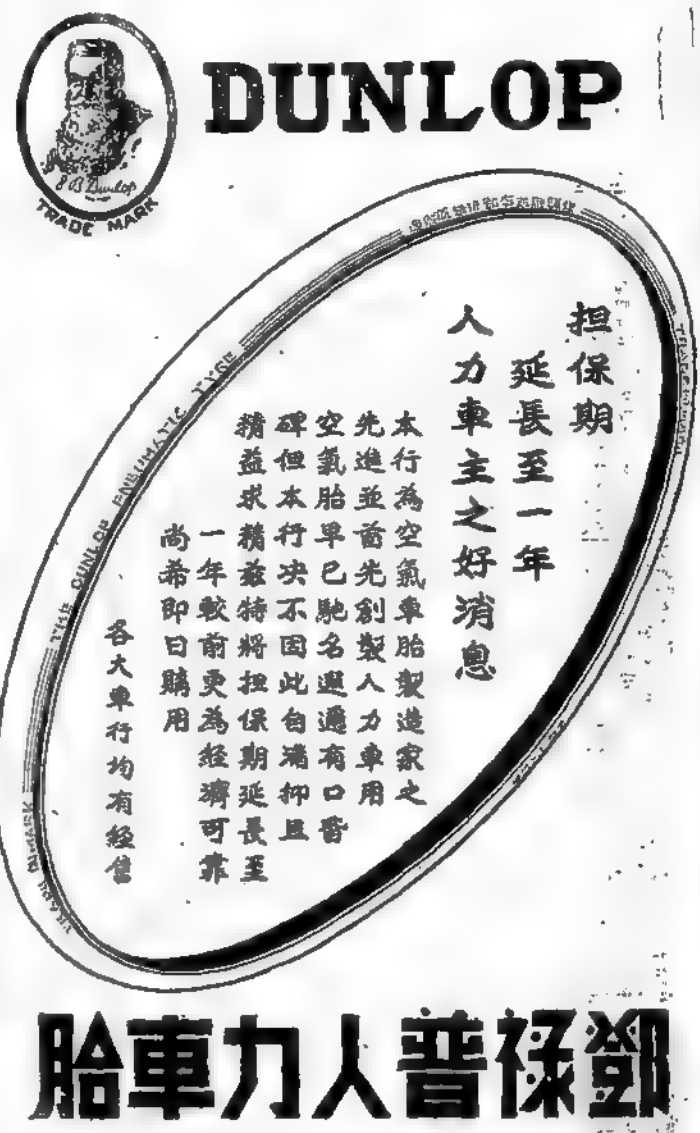 DUNLOP
J B Dunlop
TRADE MARK
THE DUNLOP PNEUMATIC TYRE
擔保期
延長至一年
人力車主之好消息
本行為空氣車胎製造家之
先進並首先創製人力車用
空氣胎早已馳名遐邇有口皆
碑但本行決不因此自滿抑且
精益求精茲特將担保期延長至
一年較前更為經濟可靠
尚希即日購用
各大車行均有經售
鄧祿普人力車胎